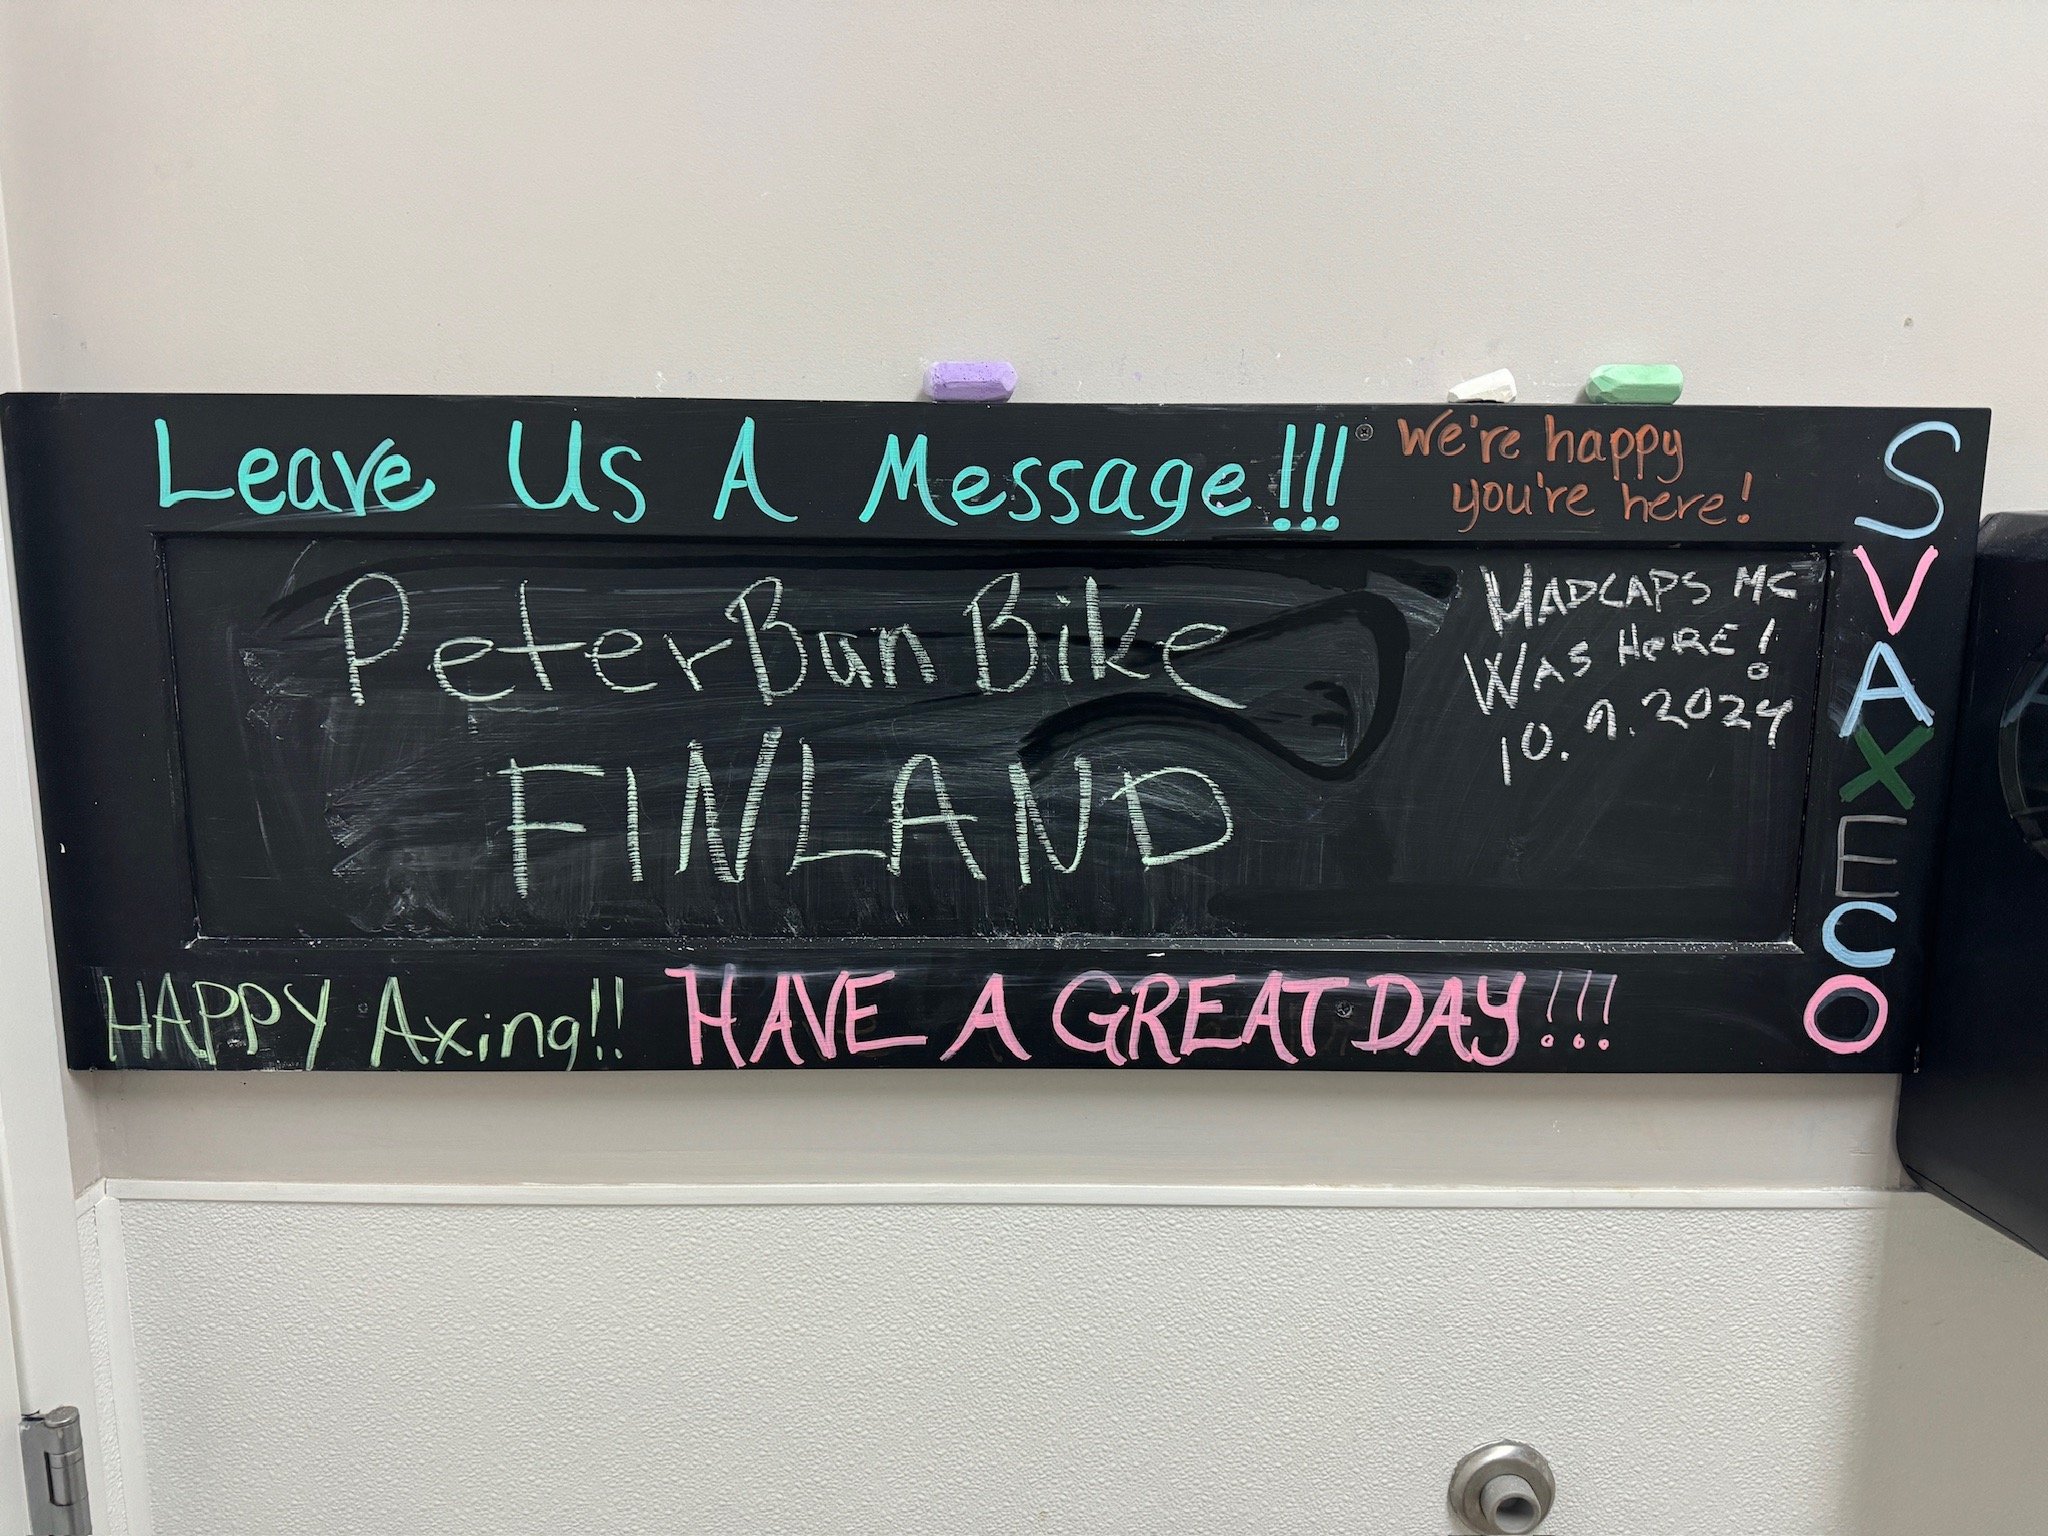 Leave Us A Message!!!
We're happy
you're here!
PeterBanBike
FINLAND
MADCAPS MC
WAS HERE!
10.9.2024
HAPPY Axing!!
HAVE A GREAT DAY!!!
SVAXECO